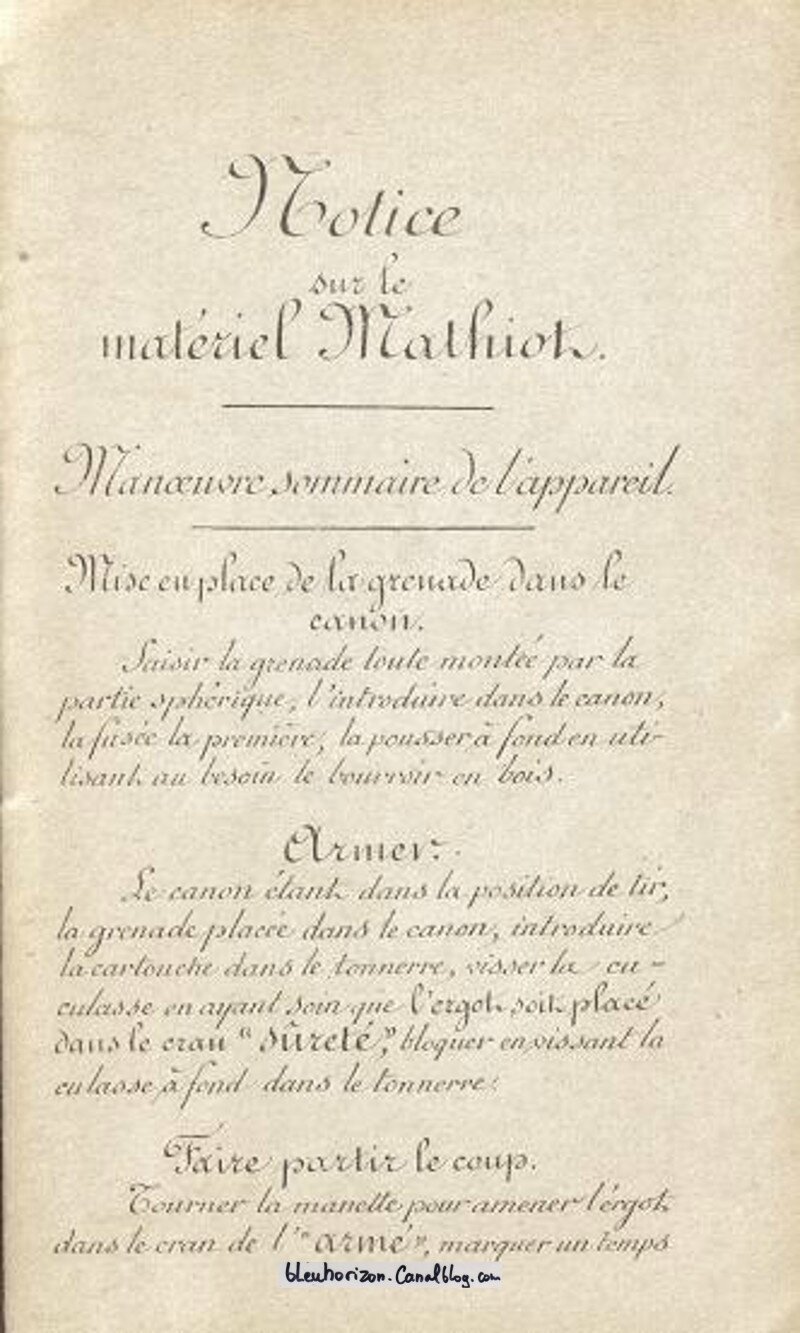 Notice
sur le
matériel Mathiot.
Manœuvre sommaire de l'appareil.
Mise en place de la grenade dans le
canon.
Saisir la grenade toute montée par la
partie sphérique, l'introduire dans le canon,
la fusée la première, la pousser à fond en uti-
lisant au besoin le bourroir en bois.
Armer.
Le canon étant dans la position de tir,
la grenade placée dans le canon, introduire
la cartouche dans le tonnerre, visser la cu-
culasse en ayant soin que l'ergot soit placé
dans le cran "sûreté," bloquer en vissant la
culasse à fond dans le tonnerre.
Faire partir le coup.
Tourner la manette pour amener l'érgot
dans le cran de l'"armé", marquer un temps
bleuhorizon.Canalblog.com